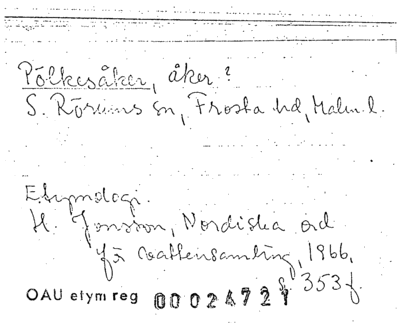 Pölkesåker, åker?
S. Rörums sn, Frosta hd, Malm.l.
Etymologi.
H. Jonsson, Nordiska ord
för vattensamling, 1966,
s. 353 f.
OAU etym reg 00024721